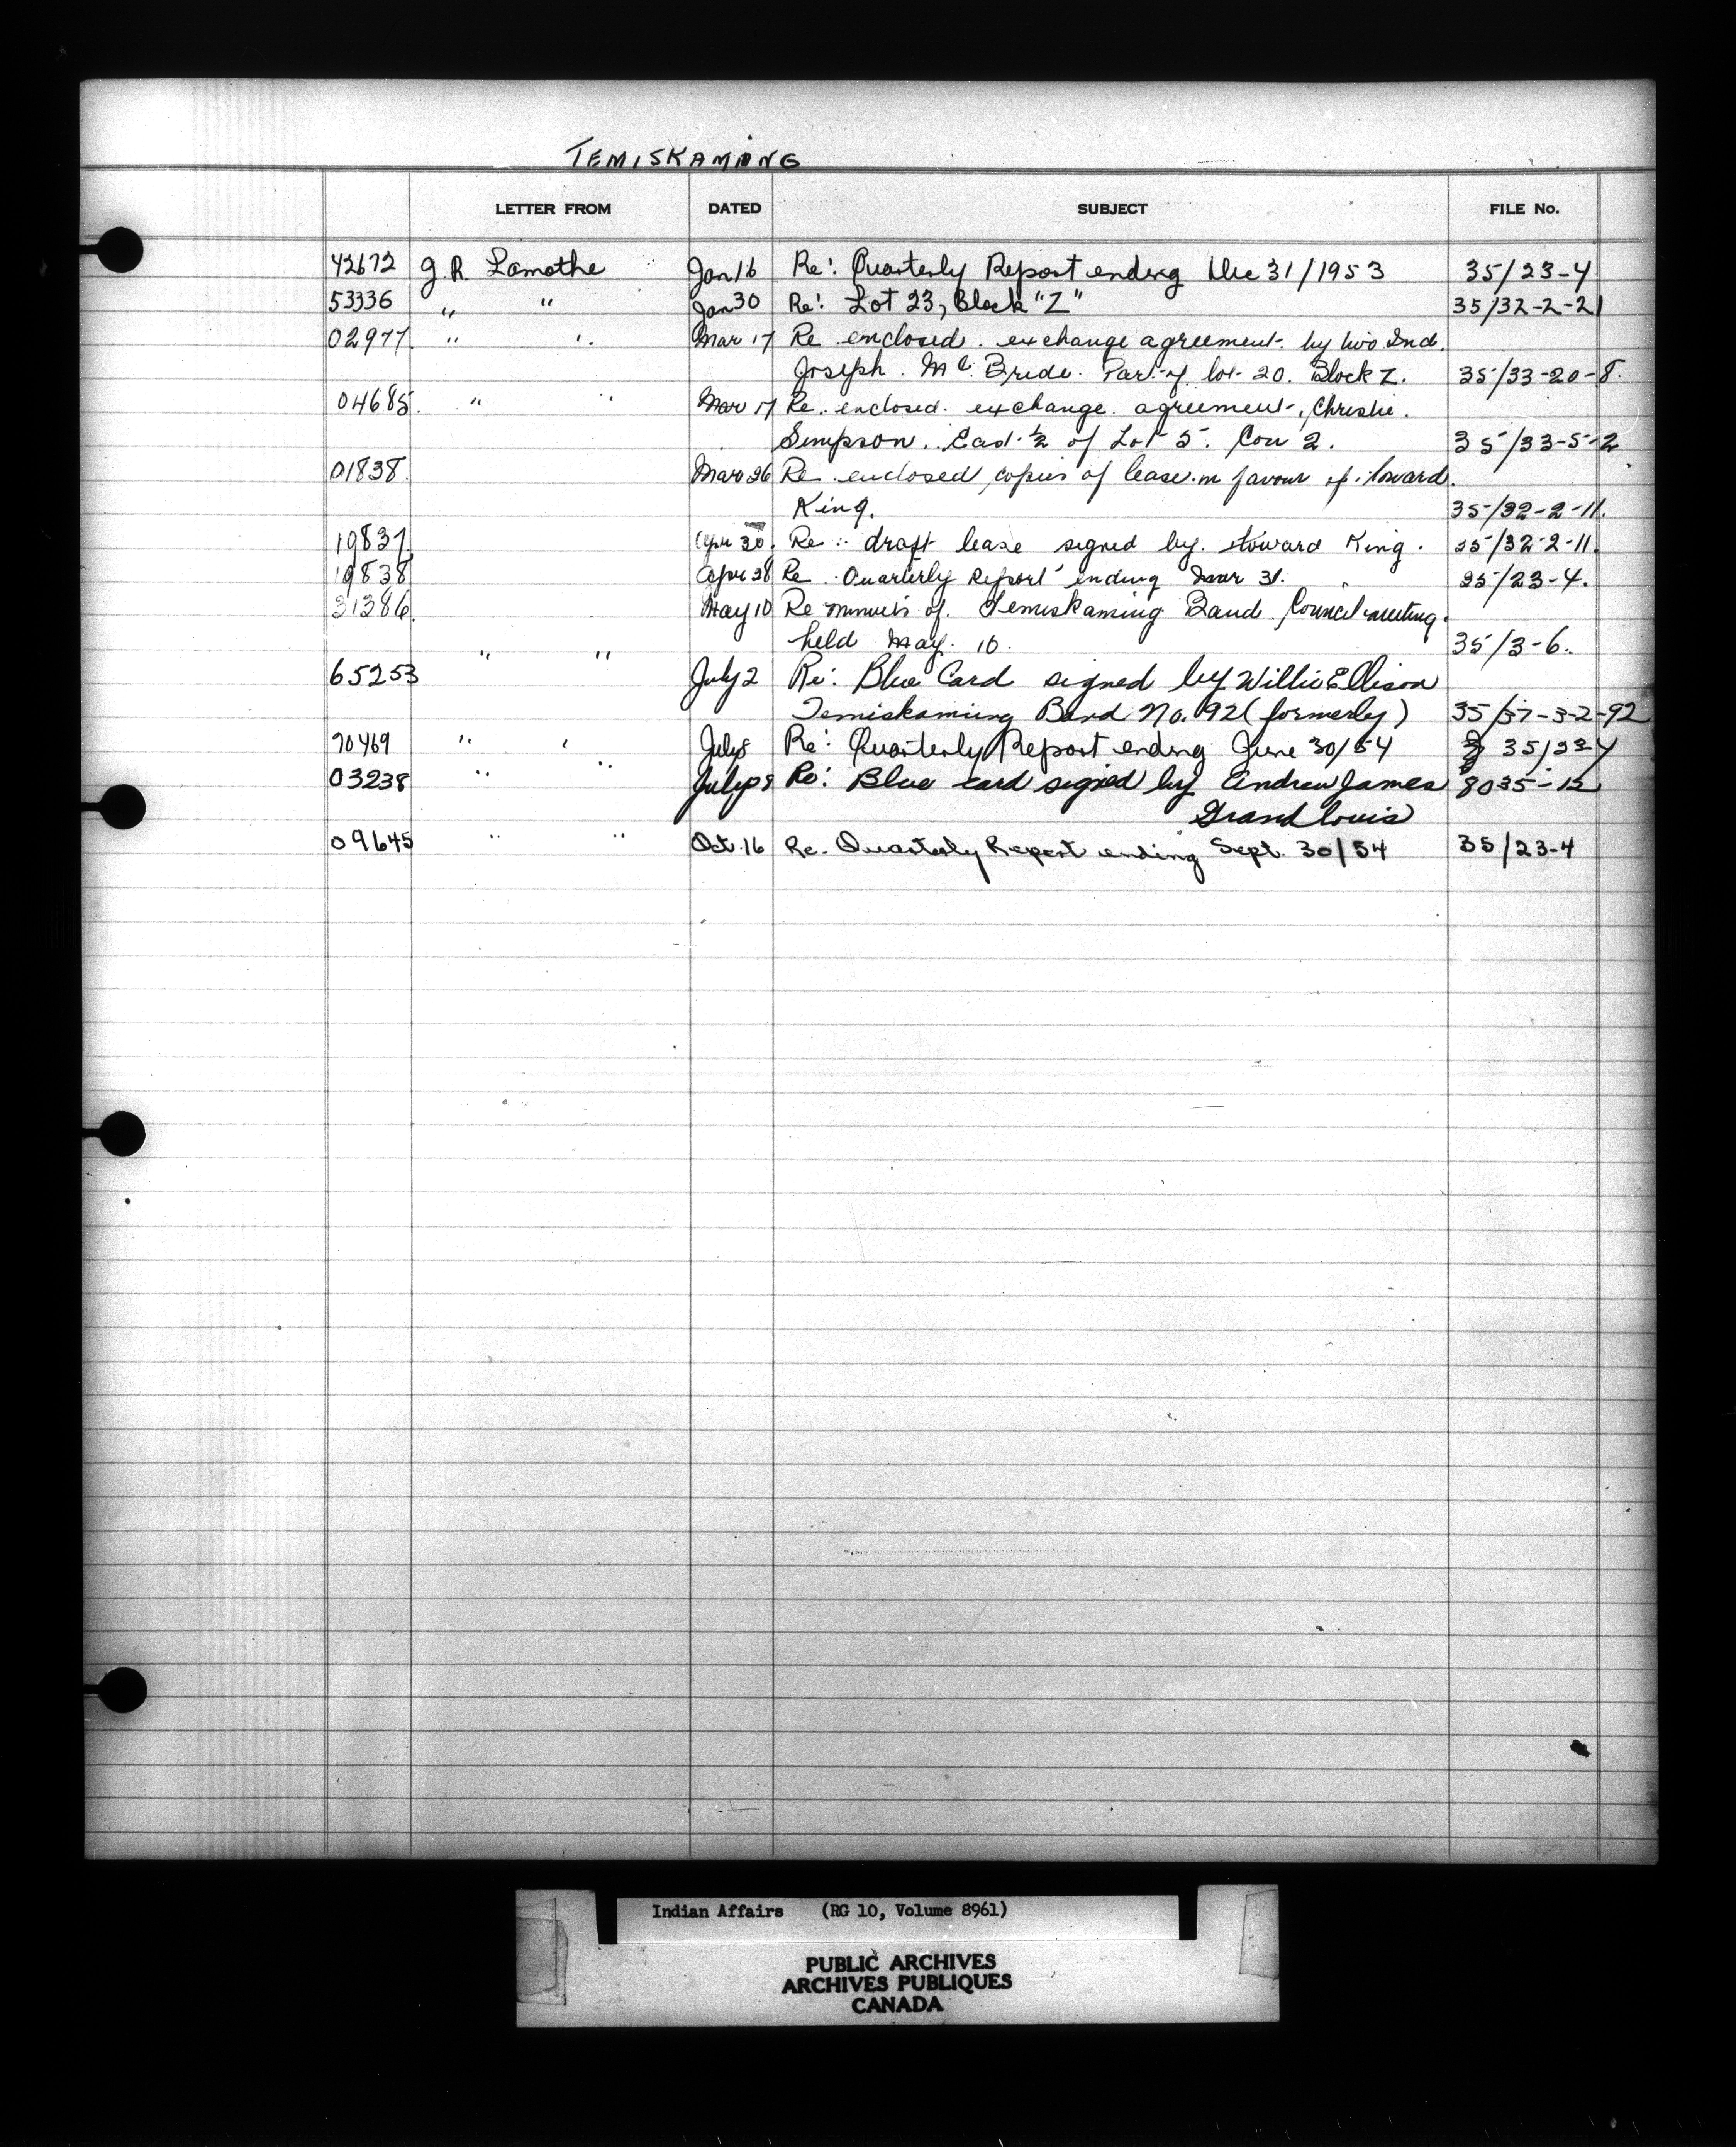 TEMISKAMING
LETTER FROM DATED SUBJECT FILE No.
42672 J. R. Lamothe Jan 16 Re: Quarterly Report ending Dec 31/1953 35/23-4
53336 " " Jan 30 Re: Lot 23, Block "Z" 35/32-2-21
02977 " " Mar 17 Re enclosed exchange agreement by two Ind.
Joseph Mc Bride. Part of lot 20. Block Z. 35/33-20-8.
04685. " " Mar 17 Re. enclosed exchange agreement, Christie.
Simpson. East ½ of Lot 5. Con 2. 35/33-5-2
01838. Mar 26 Re enclosed copies of lease in favour of Howard.
King. 35/32-2-11.
19837 Apr 30. Re: draft lease signed by Howard King. 35/32-2-11.
19838 Apr 28 Re Quarterly Report ending Mar 31. 35/23-4.
31386. May 10 Re minutes of Temiskaming Band Council meeting.
held May 10. 35/3-6.
65253 " " July 2 Re: Blue Card signed by Willie Ellison
Temiskaming Band No. 92 (formerly) 35/37-3-2-92
70469 " " July 8 Re: Quarterly Report ending June 30/54 35/23-4
03238 " " July 8 Re: Blue card signed by Andrew James 8035-12
Grand Louis
09645 " " Oct. 16 Re. Quarterly Report ending Sept. 30/54 35/23-4
Indian Affairs (RG 10, Volume 8961)
PUBLIC ARCHIVES
ARCHIVES PUBLIQUES
CANADA